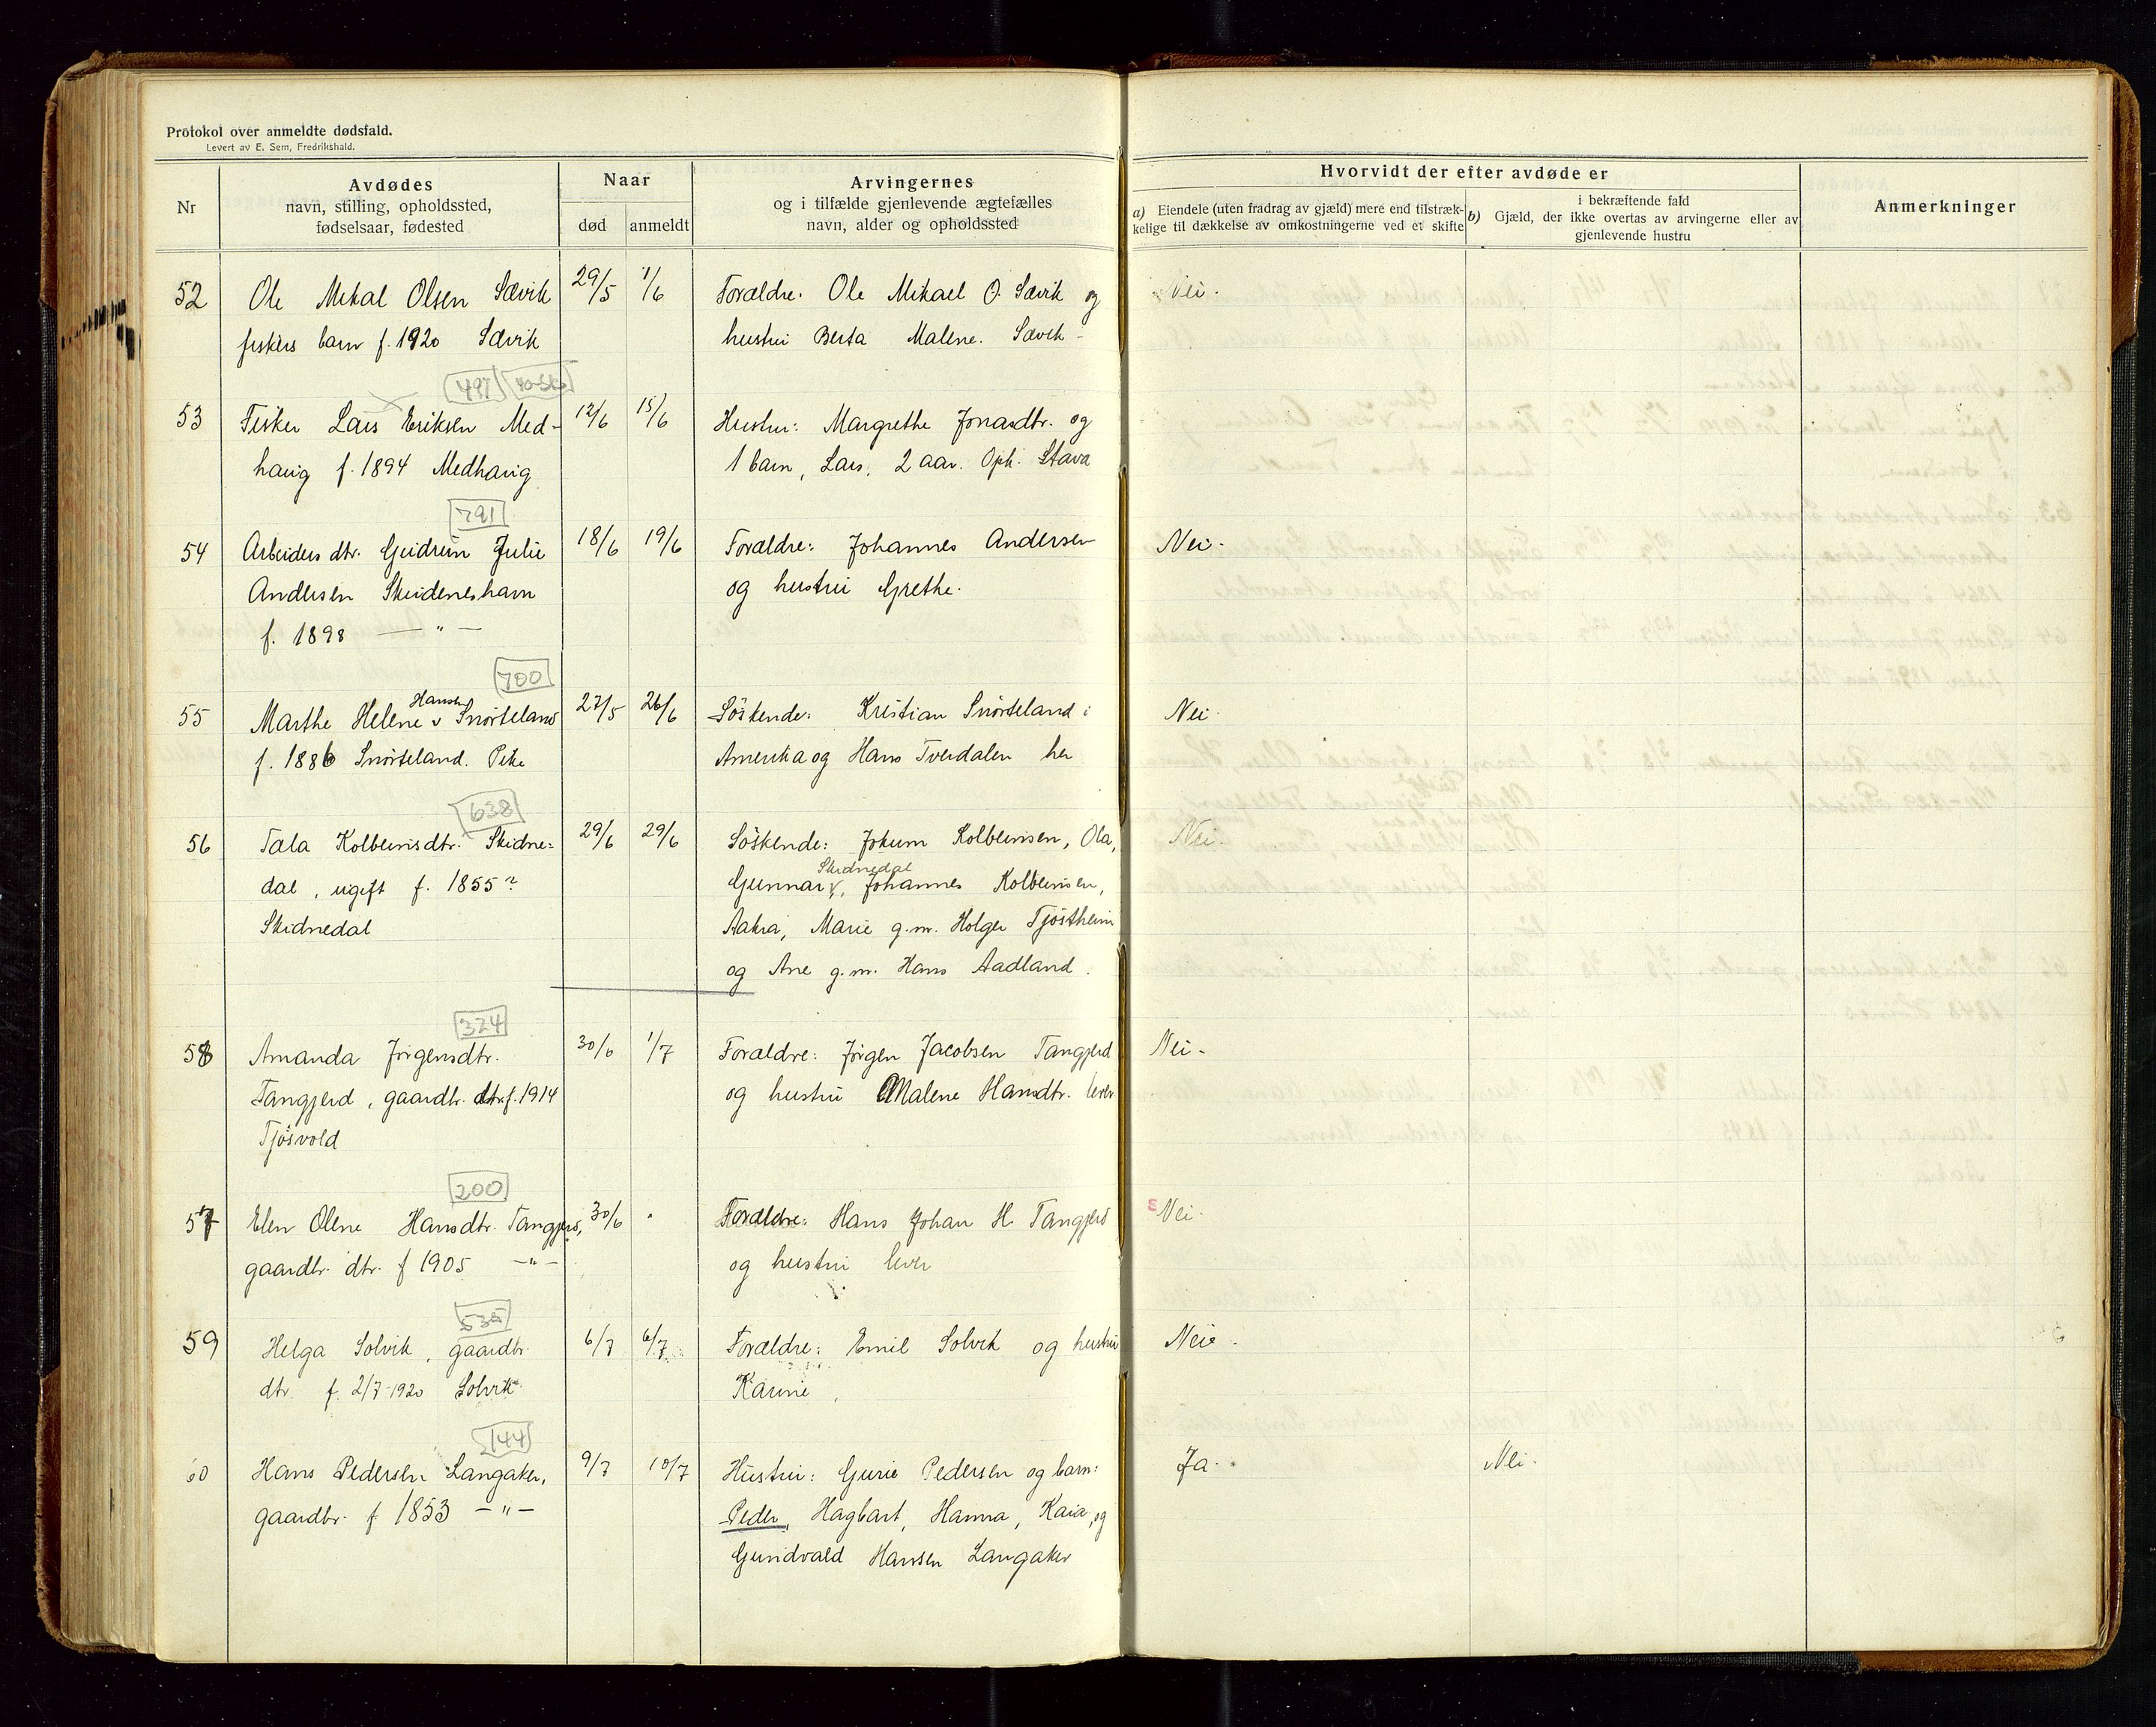 Protokol over anmeldte dødsfald.
Levert av E. Sem, Fredrikshald.
Nr
Avdødes
navn, stilling, opholdssted,
fødselsaar, fødested
Naar
død
anmeldt
Arvingernes
og i tilfælde gjenlevende ægtefælles
navn, alder og opholdssted
Hvorvidt der efter avdøde er
a) Eiendele (uten fradrag av gjæld) mere end tilstræk-
kelige til dækkelse av omkostningerne ved et skifte
i bekræftende fald
b) Gjæld, der ikke overtas av arvingerne eller av
gjenlevende hustru
Anmerkninger
52 Ole Mikal Olsen Sævik 29/5 1/6 Forældre: Ole Mikael O. Sævik og Nei.
fiskers barn f. 1920 Sævik hustru Berta Malene. Sævik -
497
53 Fisker Lars Eriksen Med- 12/6 15/6 Hustru: Margrethe Jonasdtr. og
haug f. 1894 Medhaug 1 barn, Lars, 2 aar. Oph. Stava
791
54 Arbeiders dtr. Gudrun Julie 18/6 19/6 Forældre: Johannes Andersen Nei.
Andersen Skudeneshavn og hustru Grethe.
f. 1898 — " —
700
Hansen
55 Marthe Helene v Snørteland 27/5 26/6 Søskende: Kristian Snørteland i Nei.
f. 1886 Snørteland. Pike Amerika og Hans Tverdalen her
638
56 Tala Kolbeinsdtr. Skidne- 29/6 29/6 Søskende: Jokum Kolbeinsen, Ola, Nei.
Skidnedal
dal, ugift f. 1855? Gunnar v, Johannes Kolbeinsen,
Skidnedal Aakra, Marie g.m. Holger Tjøstheim
og Ane g.m. Hans Aadland.
324
58 Amanda Jørgensdtr. 30/6 1/7 Forældre: Jørgen Jacobsen Tangjerd Nei.
Tangjerd, gaardbr. dtr. f. 1914 og hustru Malene Hansdtr. lever
Tjøsvold
200
57 Elen Oline Hansdtr. Tangjerd, 30/6 " Forældre: Hans Johan H. Tangjerd Nei.
gaardbr. dtr. f 1905 —"— og hustru lever
535
59 Helga Solvik, gaardbr. 6/7 6/7 Forældre: Emil Solvik og hustru Nei.
dtr. f. 2/7-1920 Solvik Karine
144
60 Hans Pedersen Langaker, 9/7 10/7 Hustru: Gurie Pedersen og barn: Ja. Nei.
gaardbr. f 1853 —"— Peder, Hagbart, Hanna, Kaia, og
Gundvald Hansen Langaker